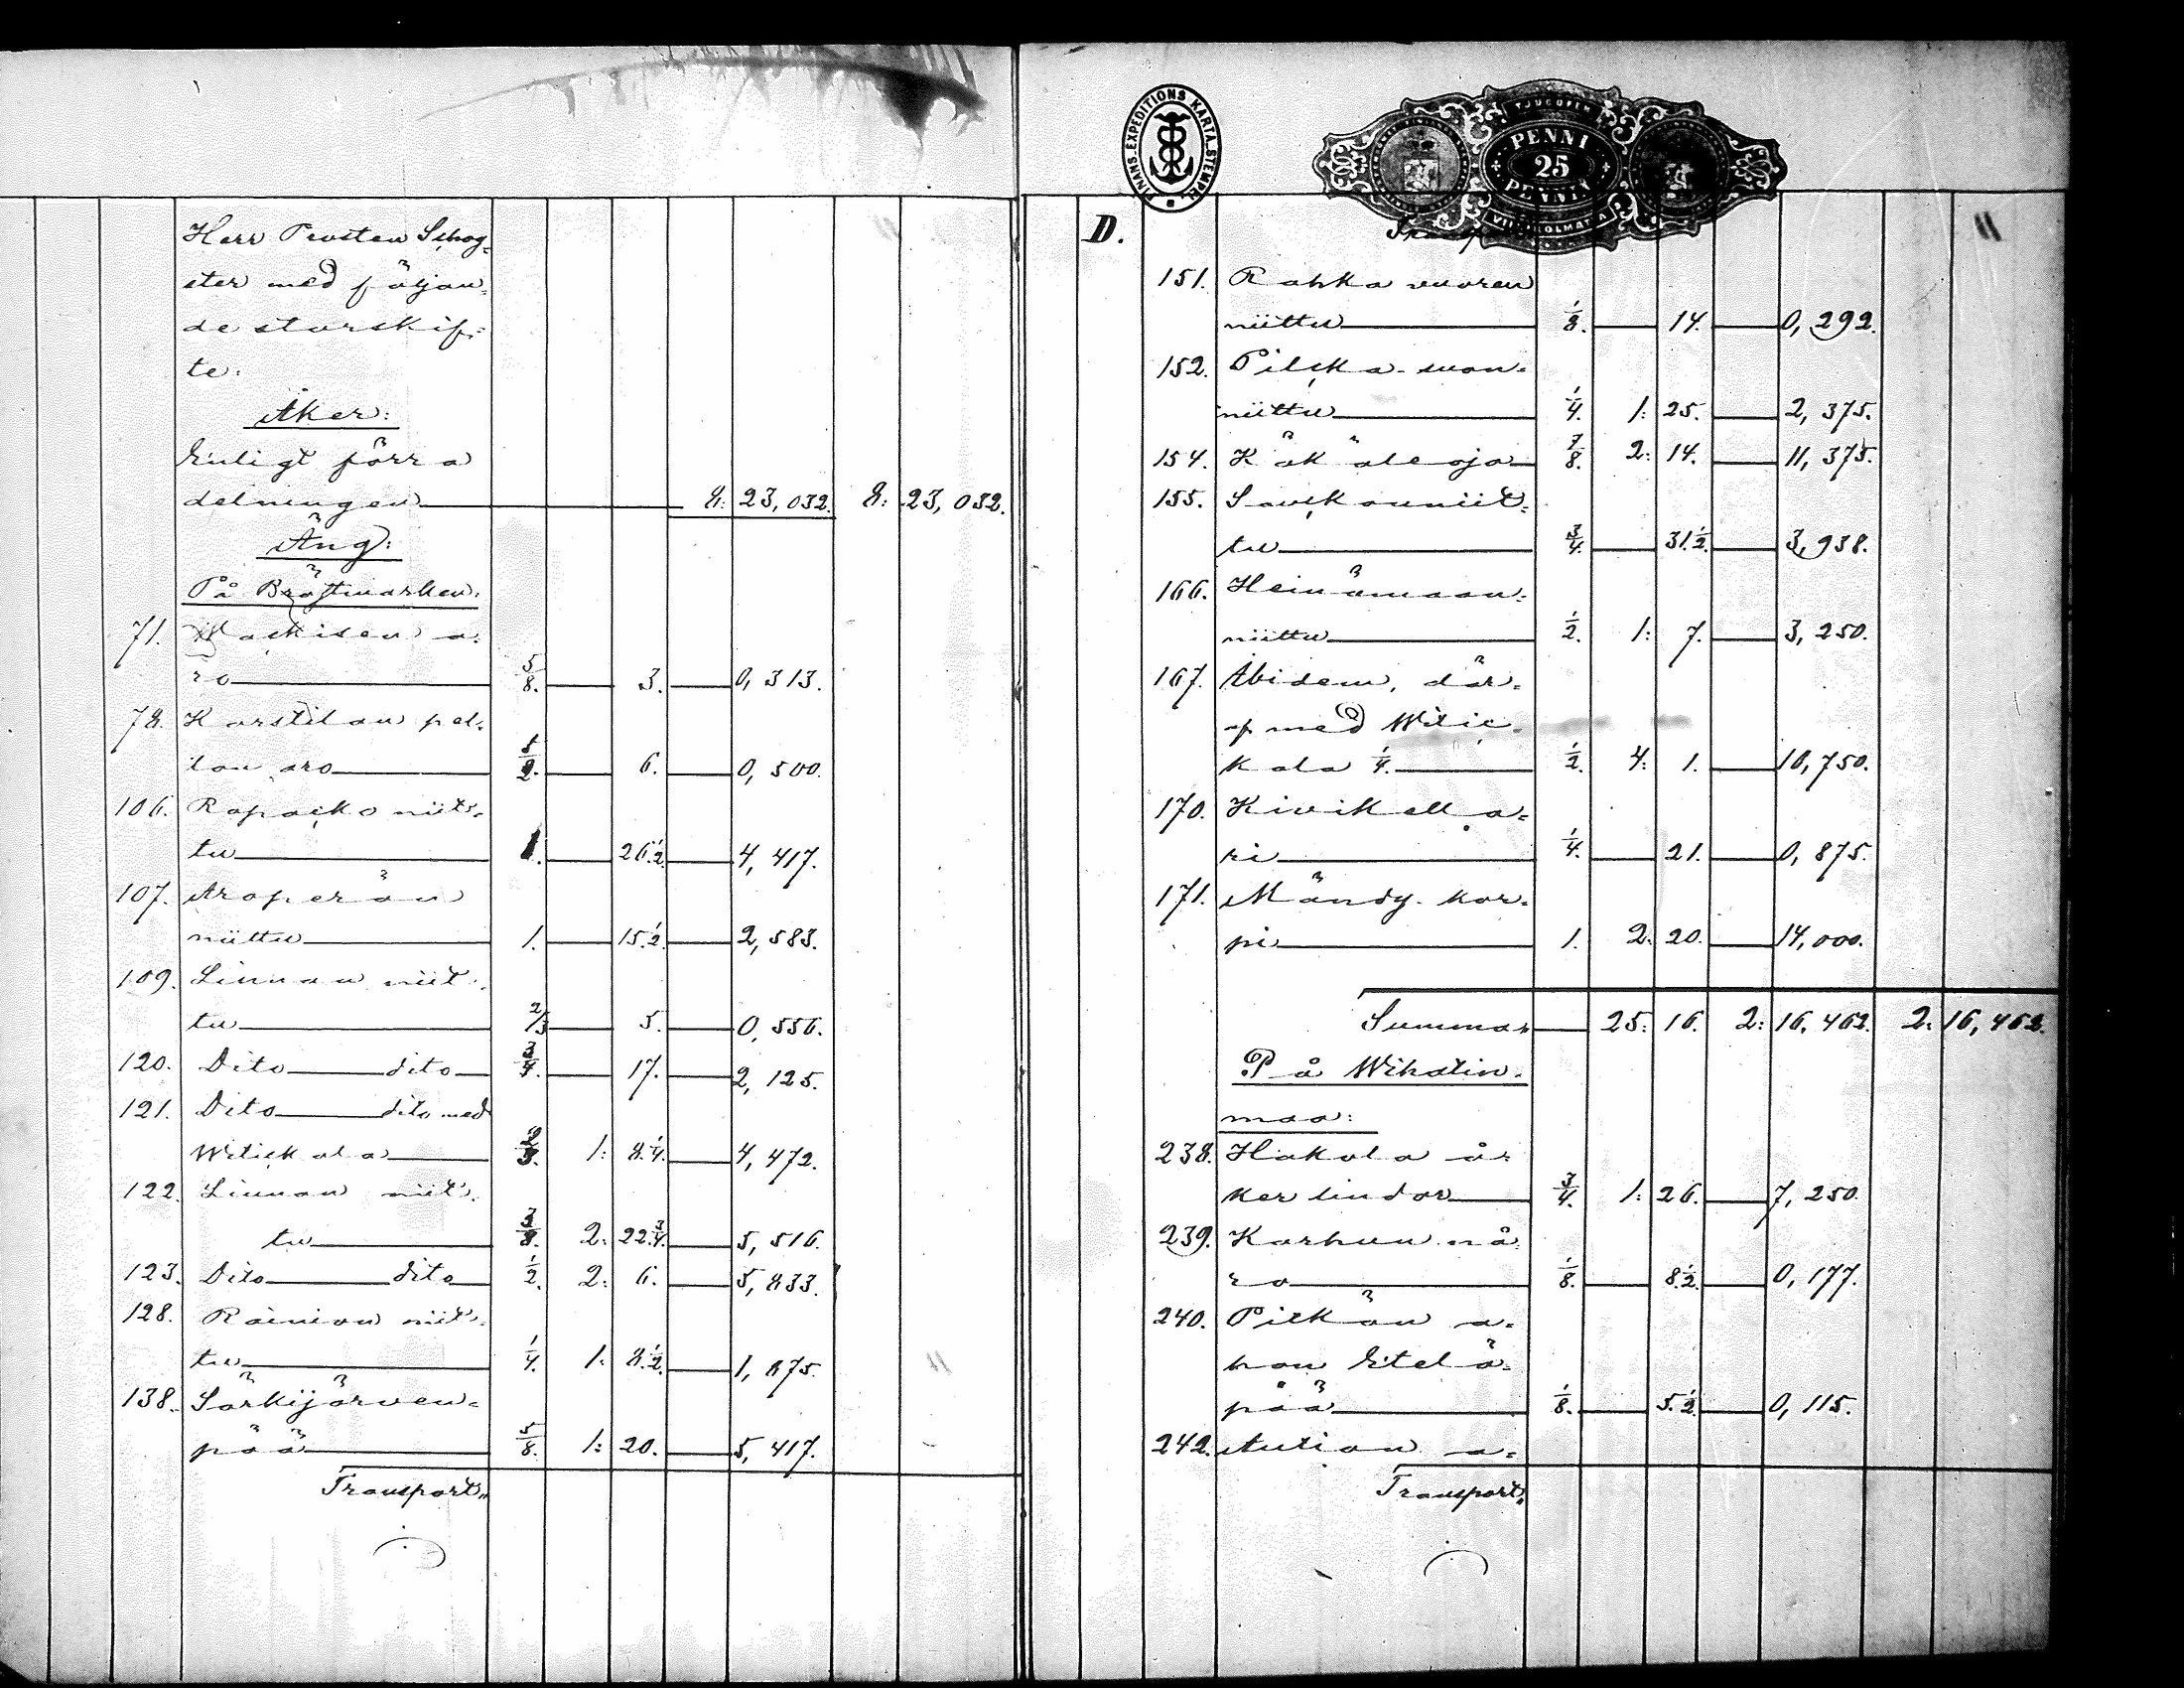 Herr Prosten Schog=
ster med följan=
de storskif=
te.
Åker:
Enligt förra
delningen 8: 23,032. 8: 23,032.
Äng:
På Bråtmarken.
71. Wackisen a=
ro 5/8. 3. 0,313.
78. Karstilan pel=
lon aro 1/2. 6. 0,500.
106. Rapacko niit=
tu 1. 26.1/2 4,417.
107. Aroperän
niittu 1. 15.1/2 2,583.
109. Linnan niit=
tu 2/3 5. 0,556.
120. Dito dito 3/4. 17. 2,125.
121. Dito dito med
Witickala 2/3. 1: 8.1/4. 4,472.
122. Linnan niit=
tu 3/8. 2: 22.3/4. 5,516.
123. Dito dito 1/2. 2: 6. 5,833.
128. Rainion niit=
tu 1/4. 1: 8.1/2. 1,875.
138. Särkijärven=
pää 5/8. 1: 20. 5,417.
Transport
FINANS.EXPEDITIONS KARTA.STEMPEL
TJUGUFEM
PENNI
25
PENNIÄ
D. Transport 11
151. Rahka vuoren
niittu 1/8. 14. 0,292.
152. Pilcka suon=
niittu 1/4. 1: 25. 2,375.
154. Käkäleoja 7/8. 2: 14. 11,375.
155. Savckonniit=
tu 3/4. 31.1/2. 3,938.
166. Heinämaan=
niittu 1/2. 1: 7. 3,250.
167. Ibidem, där=
af med Witic=
kala 1/4. 1/2. 4: 1. 10,750.
170. Kivikella=
ri 1/4. 21. 0,875.
171. Mändy kor=
pi 1. 2: 20. 14,000.
Summa 25: 16. 2: 16,462. 2: 16,462.
På Wihatin=
maa:
238. Hakala å=
ker lindor 3/4. 1: 26. 7,250.
239. Karhun nå
ro 1/8. 8.1/2. 0,177.
240. Pitkän a=
hon Etelä=
pää 1/8. 5.1/2. 0,115.
242. Aution a=
Transport